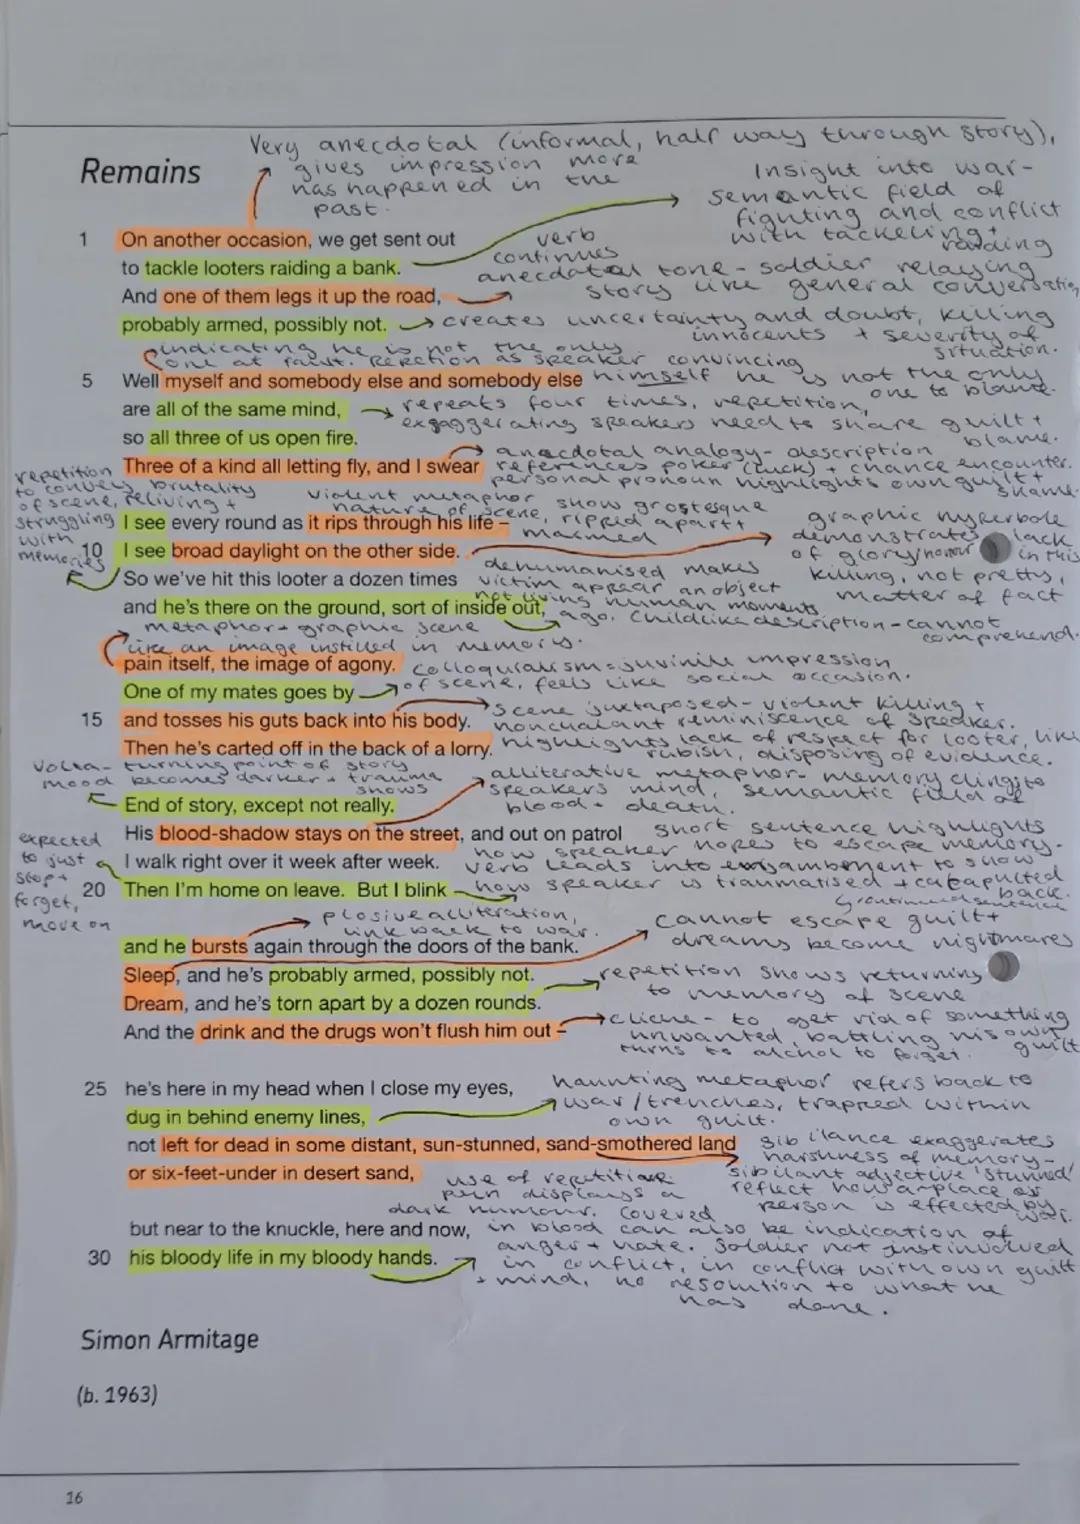 Very anecdotal (informal, half way through story),
gives impression more
has happened in the
past.
Remains
Insight into war-
semantic field of
fighting and conflict
with tackeling +
raiding
1 On another occasion, we get sent out
verb
continues
to tackle looters raiding a bank.
anecdotal tone - soldier relaying
story like general conversation
And one of them legs it up the road,
probably armed, possibly not.
creates uncertainty and doubt, killing
innocents + severity of
situation.
indicating he is not the only
one at fault. Repetion as speaker convincing
himself he is not the only
one to blame.
5 Well myself and somebody else and somebody else
are all of the same mind,
repeats four times, repetition,
exgaggerating speakers need to share guilt +
blame.
so all three of us open fire.
anecdotal analogy - description
references poker (luck) + chance encounter.
personal pronoun highlights own guilt +
shame.
Three of a kind all letting fly, and I swear
repetition
to convey brutality
of scene, reliving +
struggling
with
memories
violent metaphor show grostesque
nature of scene, ripped apart +
I see every round as it rips through his life –
graphic hyperbole
demonstrates lack
of glory/honour in this
killing, not pretty,
matter of fact
10 I see broad daylight on the other side.
dehumanised makes
victim appear an object
not living human moments
ago. Childlike description - cannot
comprehend.
So we've hit this looter a dozen times
and he's there on the ground, sort of inside out,
metaphor + graphic scene
like an image instilled in memory.
pain itself, the image of agony.
colloquialism = juvinile impression
of scene, feels like social occasion.
One of my mates goes by
scene juxtaposed - violent killing +
nonchalant reminiscence of speaker.
15 and tosses his guts back into his body.
Then he's carted off in the back of a lorry.
highlights lack of respect for looter, like
rubish, disposing of evidence.
Volta- turning point of story
mood becomes darker + trauma
shows
alliterative metaphor - memory clings to
speakers mind, semantic field of
blood + death.
End of story, except not really.
His blood-shadow stays on the street, and out on patrol
short sentence highlights
how speaker hopes to escape memory.
expected
to just
stop +
forget,
move on
I walk right over it week after week.
verb leads into enjambement to show
how speaker is traumatised + catapulted
back.
continued sentence
20 Then I'm home on leave. But I blink
plosive alliteration,
link back to war.
cannot escape guilt +
dreams become nightmares
and he bursts again through the doors of the bank.
Sleep, and he's probably armed, possibly not.
repetition shows returning
to memory of scene
Dream, and he's torn apart by a dozen rounds.
And the drink and the drugs won't flush him out –
cliche - to get rid of something
unwanted, battling his own
guilt
turns to alchol to forget.
25 he's here in my head when I close my eyes,
haunting metaphor refers back to
war/trenches, trapped within
own guilt.
dug in behind enemy lines,
not left for dead in some distant, sun-stunned, sand-smothered land
sibilance exaggerates
harshness of memory-
sibilant adjective 'stunned'
reflect how a place or
person is effected by
war.
or six-feet-under in desert sand,
use of repetitive
pun displays a
dark humour. Covered
in blood can also be indication of
anger + hate. Soldier not just involved
in conflict, in conflict with own guilt
+ mind, no resolution to what he
has done.
but near to the knuckle, here and now,
30 his bloody life in my bloody hands.
Simon Armitage
(b. 1963)
16